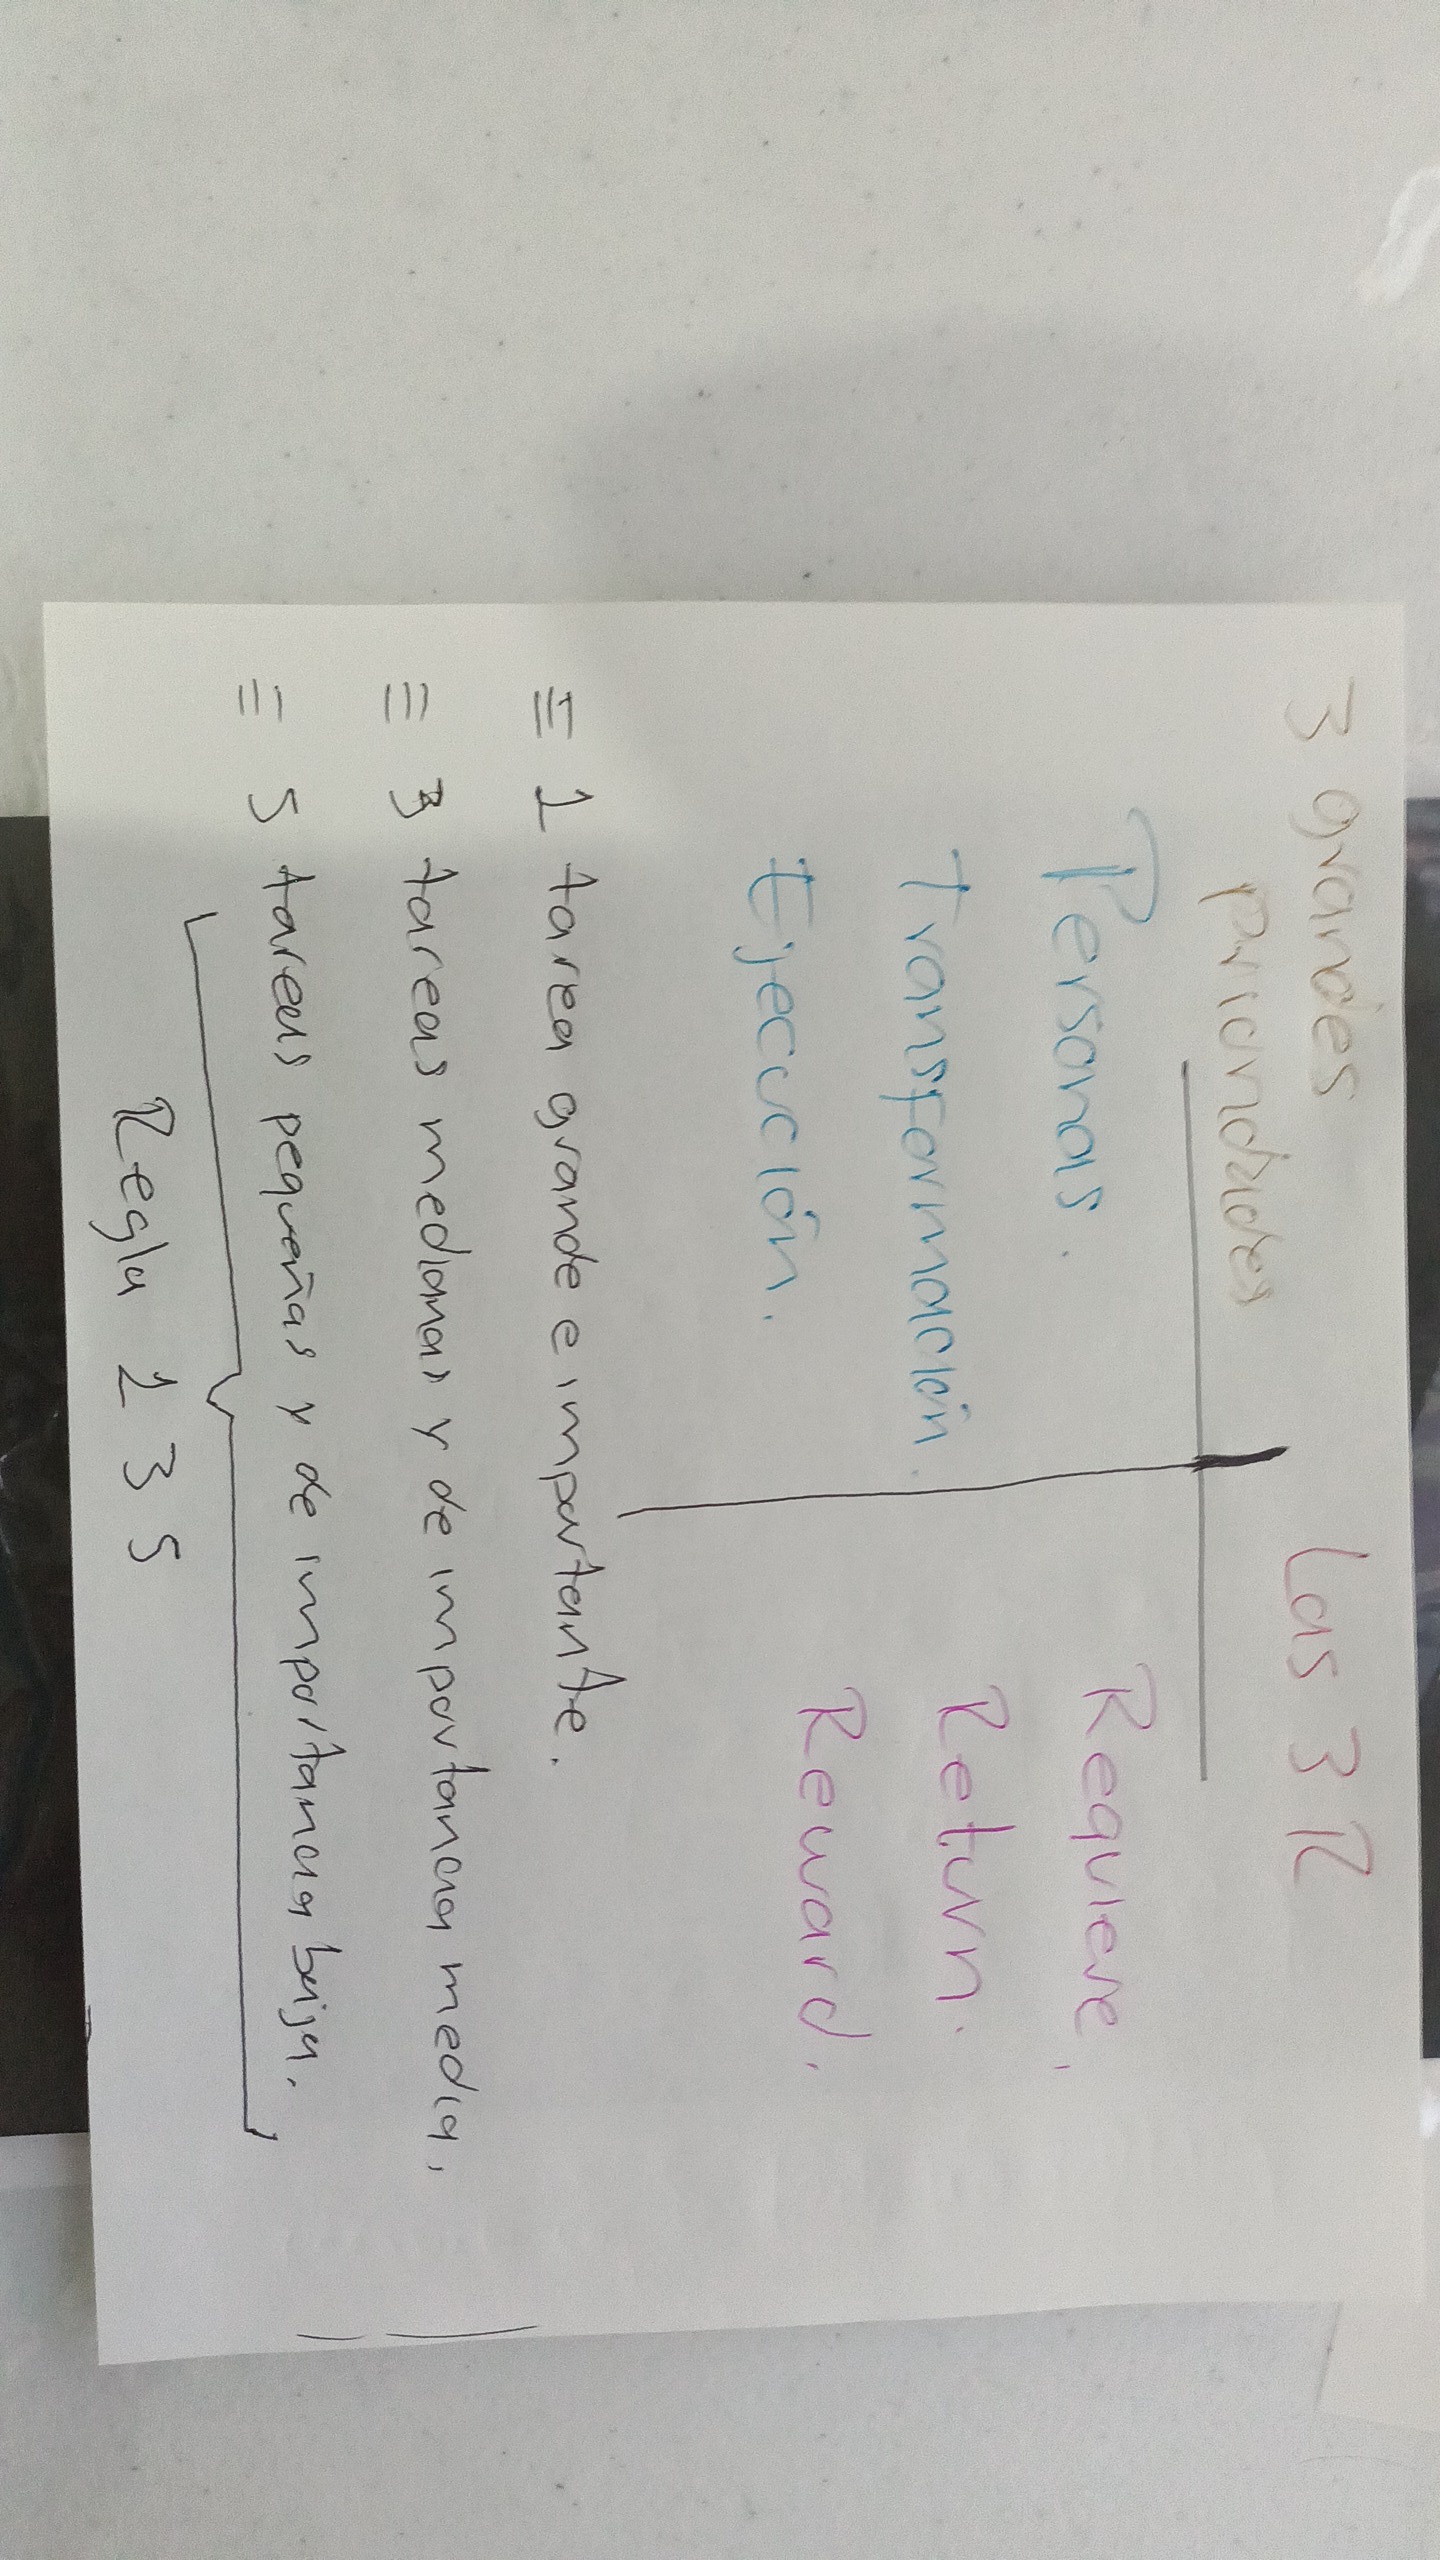 3 grandes
prioridades
Personas.
Transformación.
Ejecución.
Las 3 R
Requiere.
Return.
Reward.
≡ 1 tarea grande e importante.
≡ 3 tareas medianas y de importancia media,
≡ 5 tareas pequeñas y de importancia baja.
Regla 1 3 5